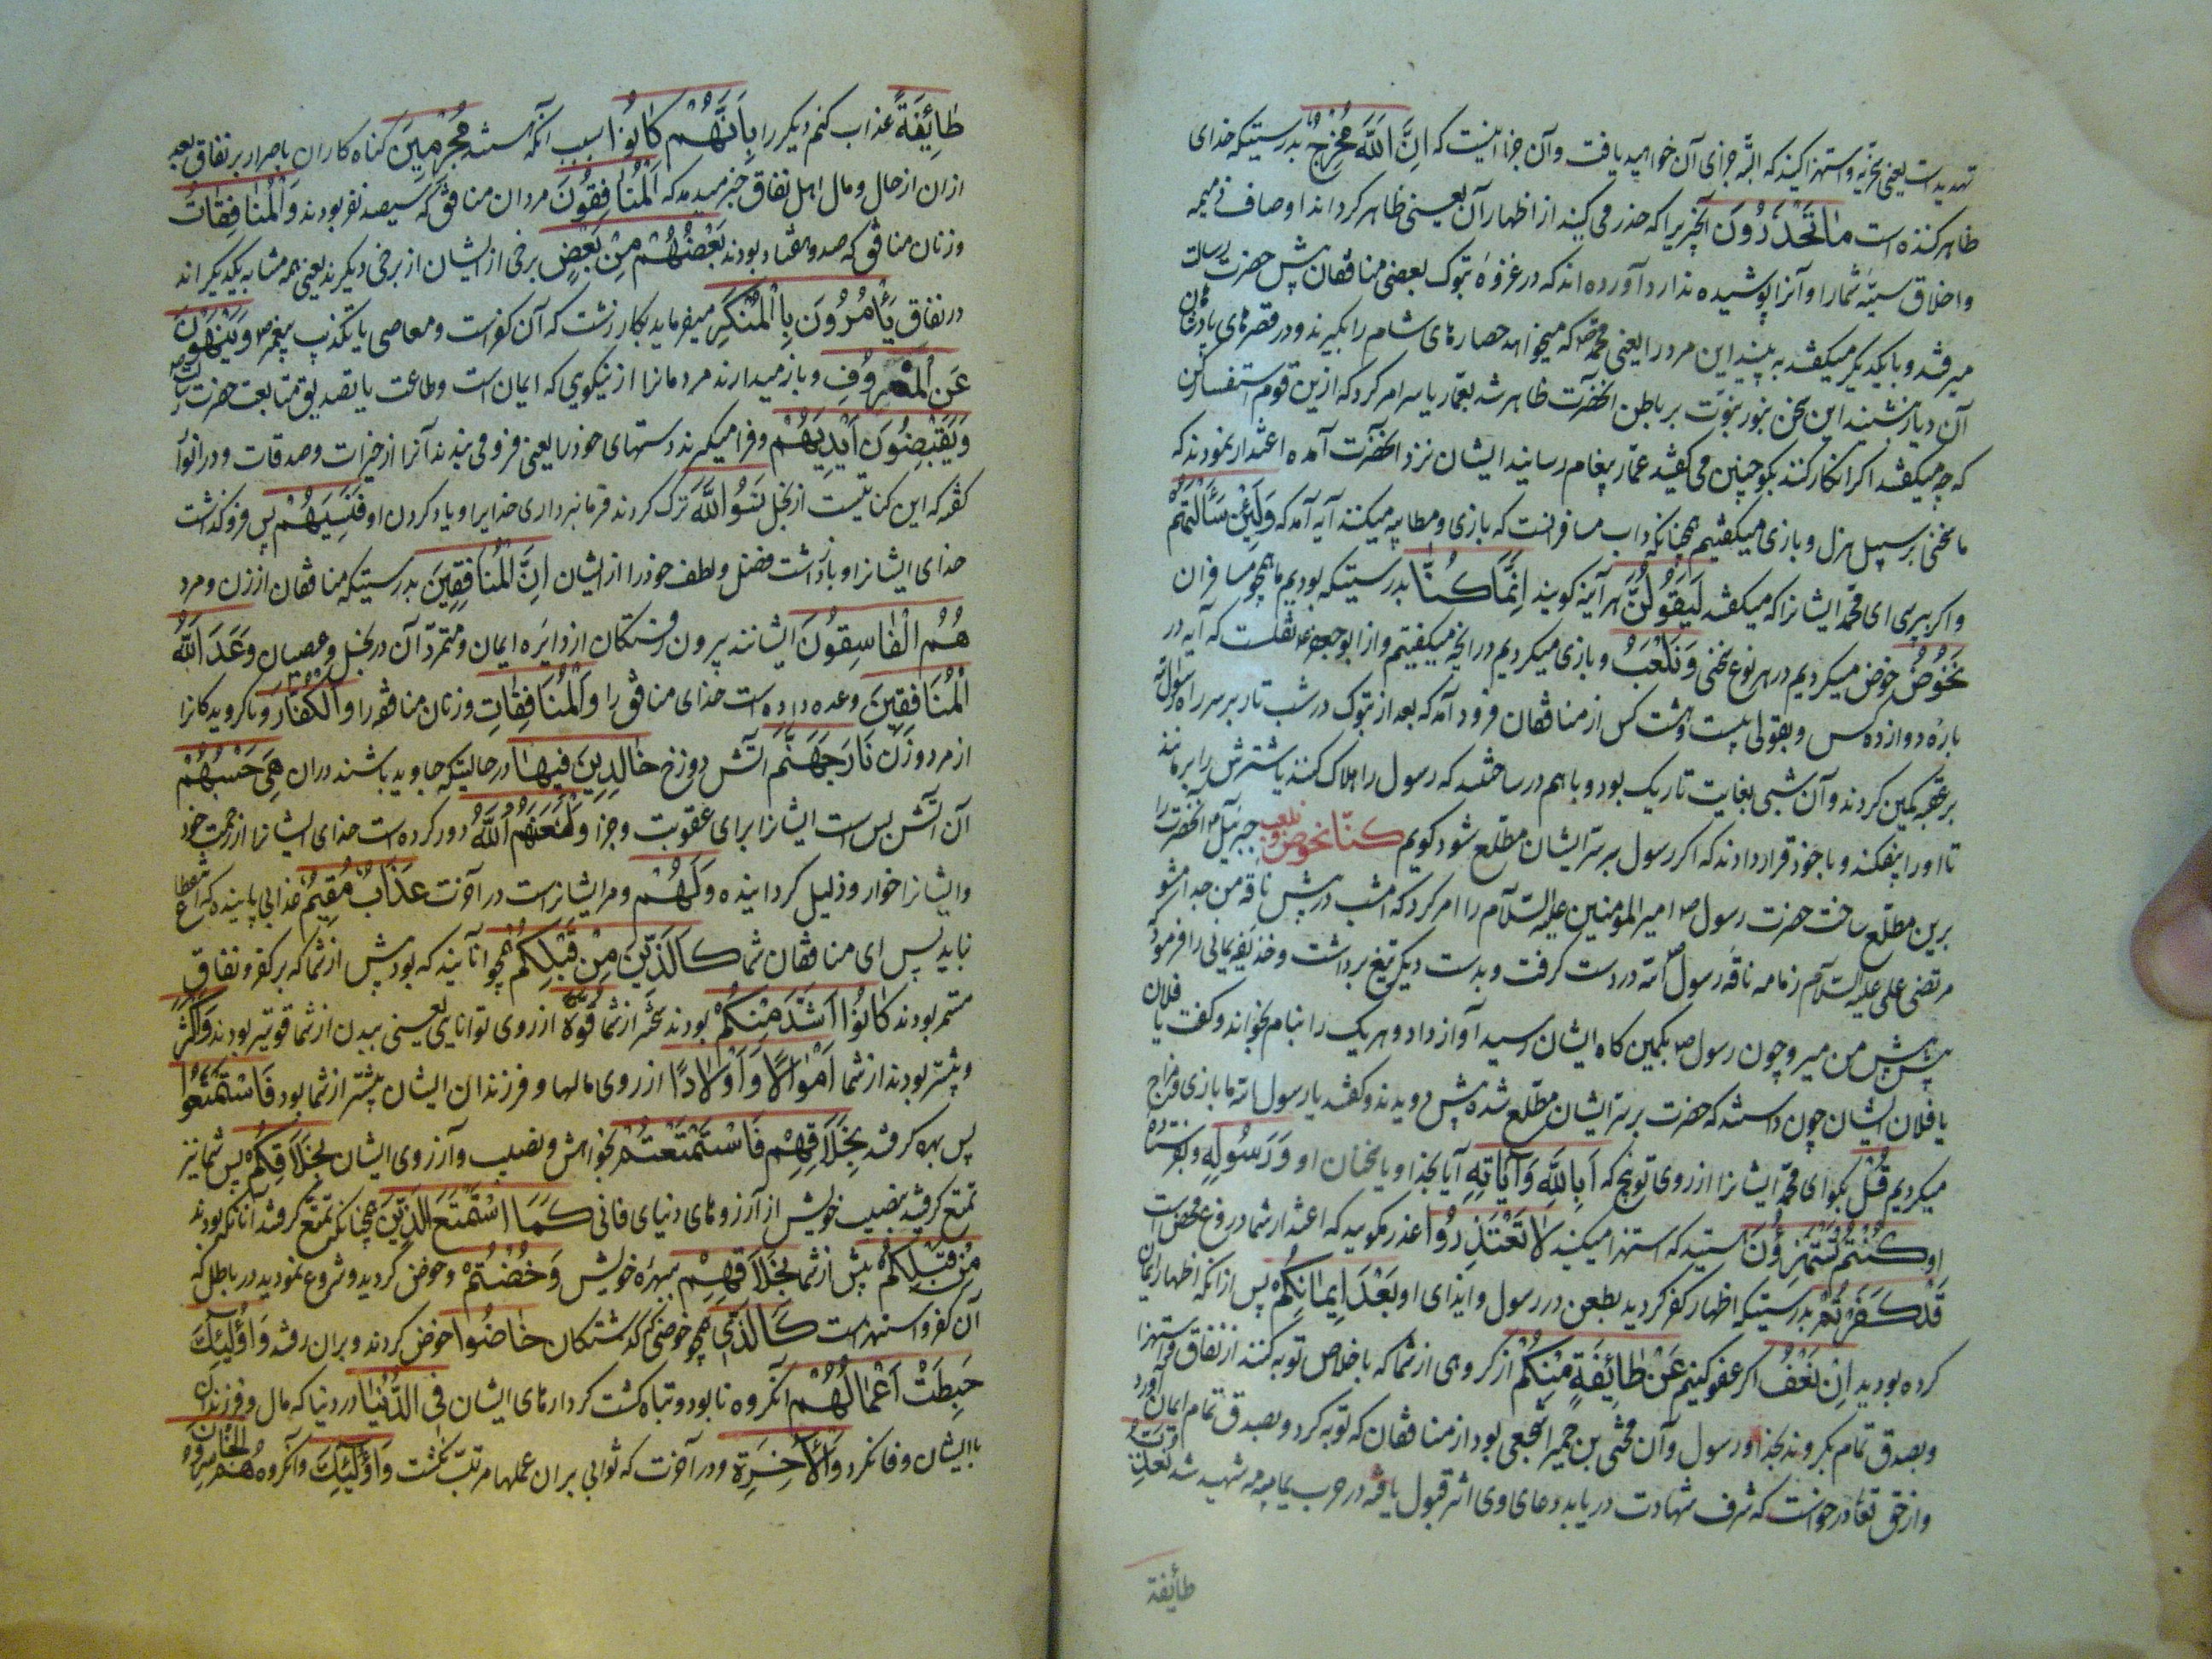 تهدیدست یعنی سخریّه و استهزا کنید که البتّه جزای آن خواهید یافت و آن جزا اینست که اِنَّ اللّٰهَ مُخْرِجٌ بدرستیکه خدای
ظاهر کننده است مٰا تَحْذَرُونَ آنچیزیرا که حذر می کنید از اظهار آن یعنی ظاهر کرداند اوصاف ذمیمه
و اخلاق سیّئه شما را و آنرا پوشیده ندارد آورده اند که در غزوهٔ تبوک بعضی منافقان پیش حضرت رسالت
میرفتند و با یکدیکر میکفتند به بینید این مرد را یعنی محمّد ص که میخواهد حصارهای شام را بکیرند و در قصرهای پادشاهان
آن دیار نشیند این سخن بنور نبوّت بر باطن آنحضرت ظاهر شد بعمّار یاسر امر کرد که ازین قوم استفسار کن
که چه میکفتند اکر انکار کنند بکو چنین می کفتید عمّار پیغام رسانید ایشان نزد آنحضرت آمده اعتذار نمودند که
ما سخنی بر سبیل هزل و بازی میکفتیم همچنانکه داب مسافرانست که بازی و مطایبه میکنند آیه آمد که وَلَئِنْ سَأَلْتَهُمْ
و اکر بپرسی ای محمّد ایشانرا که میکفتند لَیَقُولُنَّ هر آینه کویند اِنَّمٰا کُنّٰا بدرستیکه بودیم ما همچو مسافران
نَخُوضُ خوض میکردیم در هر نوع سخنی وَنَلْعَبُ و بازی میکردیم در انچه میکفتیم و از ابو جعفر ع نقلست که آیه در
بارهٔ دوازده کس و بقولی بیست و هشت کس از منافقان فرود آمد که بعد از تبوک در شب تار بر سر راه رسول اللّه
بر عقبه کمین کردند و آن شبی بغایت تاریک بود و با هم در ساختند که رسول را هلاک کنند یا شترش را برمانند
تا او را بیفکند و با خود قرار دادند که اکر رسول بر سرّ ایشان مطّلع شود کویم کنّا نخوض و نلعب جبرئیل ع آنحضرت را
برین مطّلع ساخت حضرت رسول ص امیر المؤمنین علیه السّلام را امر کرد که امشب در پیش ناقه من جدا مشو
مرتضی علی علیه السّلام زمامه ناقه رسول اللّه در دست کرفت و بدست دیکر تیغ برداشت و حذیفه یمانی را فرمود که
پیش پیش من میرو چون رسول ص بکمین کاه ایشان رسید آواز داد و هر یک را بنام بخواند و کفت یا فلان
یا فلان ایشان چون دانستند که حضرت بر سرّ ایشان مطّلع شده پیش دویدند و کفتند یا رسول اللّه ما بازی و مزاح
میکردیم قُلْ بکو ای محمّد ایشانرا از روی توبیخ که اَبِاللّٰهِ وَآیٰاتِهِ آیا بخدا و یا سخنان او وَرَسُولِهِ و بفرستادهٔ
او کُنْتُمْ تَسْتَهْزِؤُنَ هستید که استهزا میکنید لاٰ تَعْتَذِرُوا عذر مکویید که اعتذار شما دروغ محض است
قَدْ کَفَرْتُمْ بدرستیکه اظهار کفر کردید بطعن در رسول و ایذای او بَعْدَ اِیمٰانِکُمْ پس از انکه اظهار ایمان
کرده بودید اِنْ نَعْفُ اکر عفو کنیم عَنْ طٰائِفَةٍ مِنْکُمْ از کروهی از شما که باخلاص توبه کنند از نفاق و استهزا
و بصدق تمام بکروند بخدا و رسول و آن مخشی بن حمیر اشجعی بود از منافقان که توبه کرد و بصدق تمام ایمان آورد
و از حق تعا درخواست که شرف شهادت دریابد دعای وی اثر قبول یافته در حرب یمامه شهید شد نُعَذِّبْ
طائفة
طٰائِفَةً عذاب کنم دیکر را بِاَنَّهُمْ کٰانُوا بسبب آنکه هستند مُجْرِمِینَ کناه کاران باصرار بر نفاق بعد
از ان از حال و مال اهل نفاق خبر میدهد که اَلْمُنٰافِقُونَ مردان منافق که سیصد نفر بودند وَالْمُنٰافِقٰاتُ
و زنان منافق که صد و هفتاد بودند بَعْضُهُمْ مِنْ بَعْضٍ برخی از ایشان از برخی دیکرند یعنی همه مشابه یکدیکراند
در نفاق یَأْمُرُونَ بِالْمُنْکَرِ میفرماید بکار زشت که آن کفرست و معاصی یا تکذیب پیغمبر ص وَیَنْهَوْنَ
عَنِ الْمَعْرُوفِ و باز میدارند مردمانرا از نیکویی که ایمان است و طاعت یا تصدیق متابعت حضرت رسالت
وَیَقْبِضُونَ اَیْدِیَهُمْ و فرا میکیرند دستهای خود را یعنی فرو می بندند آنرا از خیرات و صدقات و در انوا
کفته که این کنایتست از بخل نَسُوا اللّٰهَ ترک کردند فرمانبرداری خدایرا و یاد کردن او فَنَسِیَهُمْ پس فرو کذاشت
خدای ایشانرا و بازداشت فضل و لطف خود را از ایشان اِنَّ الْمُنٰافِقِینَ بدرستیکه منافقان از زن و مرد
هُمُ الْفٰاسِقُونَ ایشانند بیرون رفتکان از دایره ایمان و متمرّد آن در بخل و عصیان وَعَدَ اللّٰهُ
الْمُنٰافِقِینَ وعده داده است خدای منافق را وَالْمُنٰافِقٰاتِ و زنان منافقه را وَالْکُفّٰارَ و ناکرویدکانرا
از مرد و زن نٰارَ جَهَنَّمَ آتش دوزخ خٰالِدِینَ فِیهٰا در حالیتکه جاوید باشند دران هِیَ حَسْبُهُمْ
آن آتش بس است ایشانرا برای عقوبت و جزا وَلَعَنَهُمُ اللّٰهُ دور کرده است خدای ایشانرا از رحمت خود
و ایشانرا خوار و ذلیل کردانیده وَلَهُمْ و مر ایشانراست در آخرت عَذٰابٌ مُقِیمٌ عذابی پاینده که انقطاع
نیابد پس ای منافقان شما کَالَّذِینَ مِنْ قَبْلِکُمْ همچو آنانید که بود پیش از شما که بر کفر و نفاق
مستمر بودند کٰانُوا اَشَدَّ مِنْکُمْ بودند سختر از شما قُوَّةً از روی توانایی یعنی ببدن از شما قوتیر بودند وَاَکْثَرَ
و بیشتر بودند از شما اَمْوٰالاً وَاَوْلاٰدًا از روی مالها و فرزندان ایشان بیشتر از شما بود فَاسْتَمْتَعُوا
پس بهره کرفتند بِخَلاٰقِهِمْ فَاسْتَمْتَعْتُمْ بخواهش و نصیب و آرزوی ایشان بِخَلاٰقِکُمْ پس شما نیز
تمتع کرفتید بنصیب خویش از آرزوهای دنیای فانی کَمَا اسْتَمْتَعَ الَّذِینَ همچنانکه تمتع کرفتند آنانکه بودند
مِنْ قَبْلِکُمْ پیش از شما بِخَلاٰقِهِمْ ببهرهٔ خویش وَخُضْتُمْ و خوض کردید و شروع نمودید در باطل که
آن کفر و استهزاست کَالَّذِی همچو خوضی که کذشتکان خٰاضُوا خوض کردند و بران رفتند وَاُولٰئِکَ
حَبِطَتْ اَعْمٰالُهُمْ آنکروه نابود و تباه کشت کردارهای ایشان فِی الدُّنْیٰا در دنیا که مال و فرزندان
باایشان وفا نکرد وَالْآخِرَةِ و در آخرت که ثوابی بران عملها مرتب نکشت وَاُولٰئِکَ و آنکروه هُمُ الْخٰاسِرُونَ